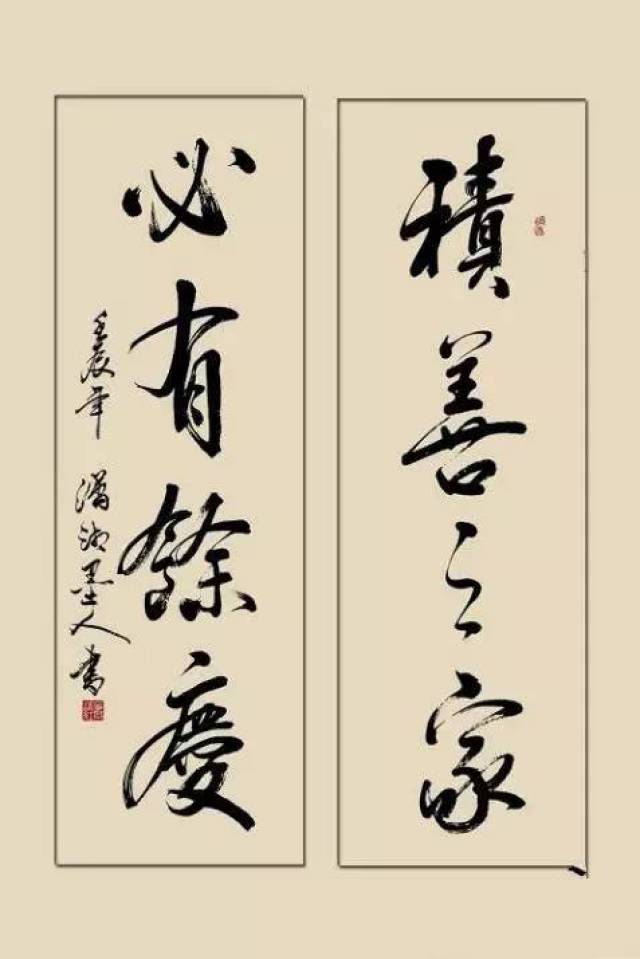 積善之家
必有餘慶
壬辰年 瀟湘墨人書